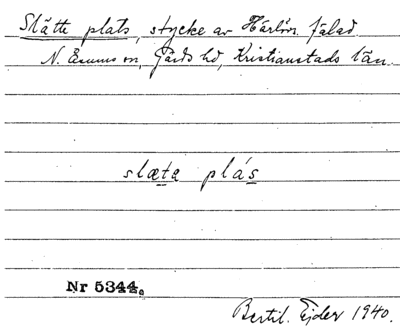 Slätte plats, stycke av Härlövs fälad
N. Åsums sn, Gärds hd, Kristianstads län.
slæta plás
Nr 5344a
Bertil Ejder 1940.